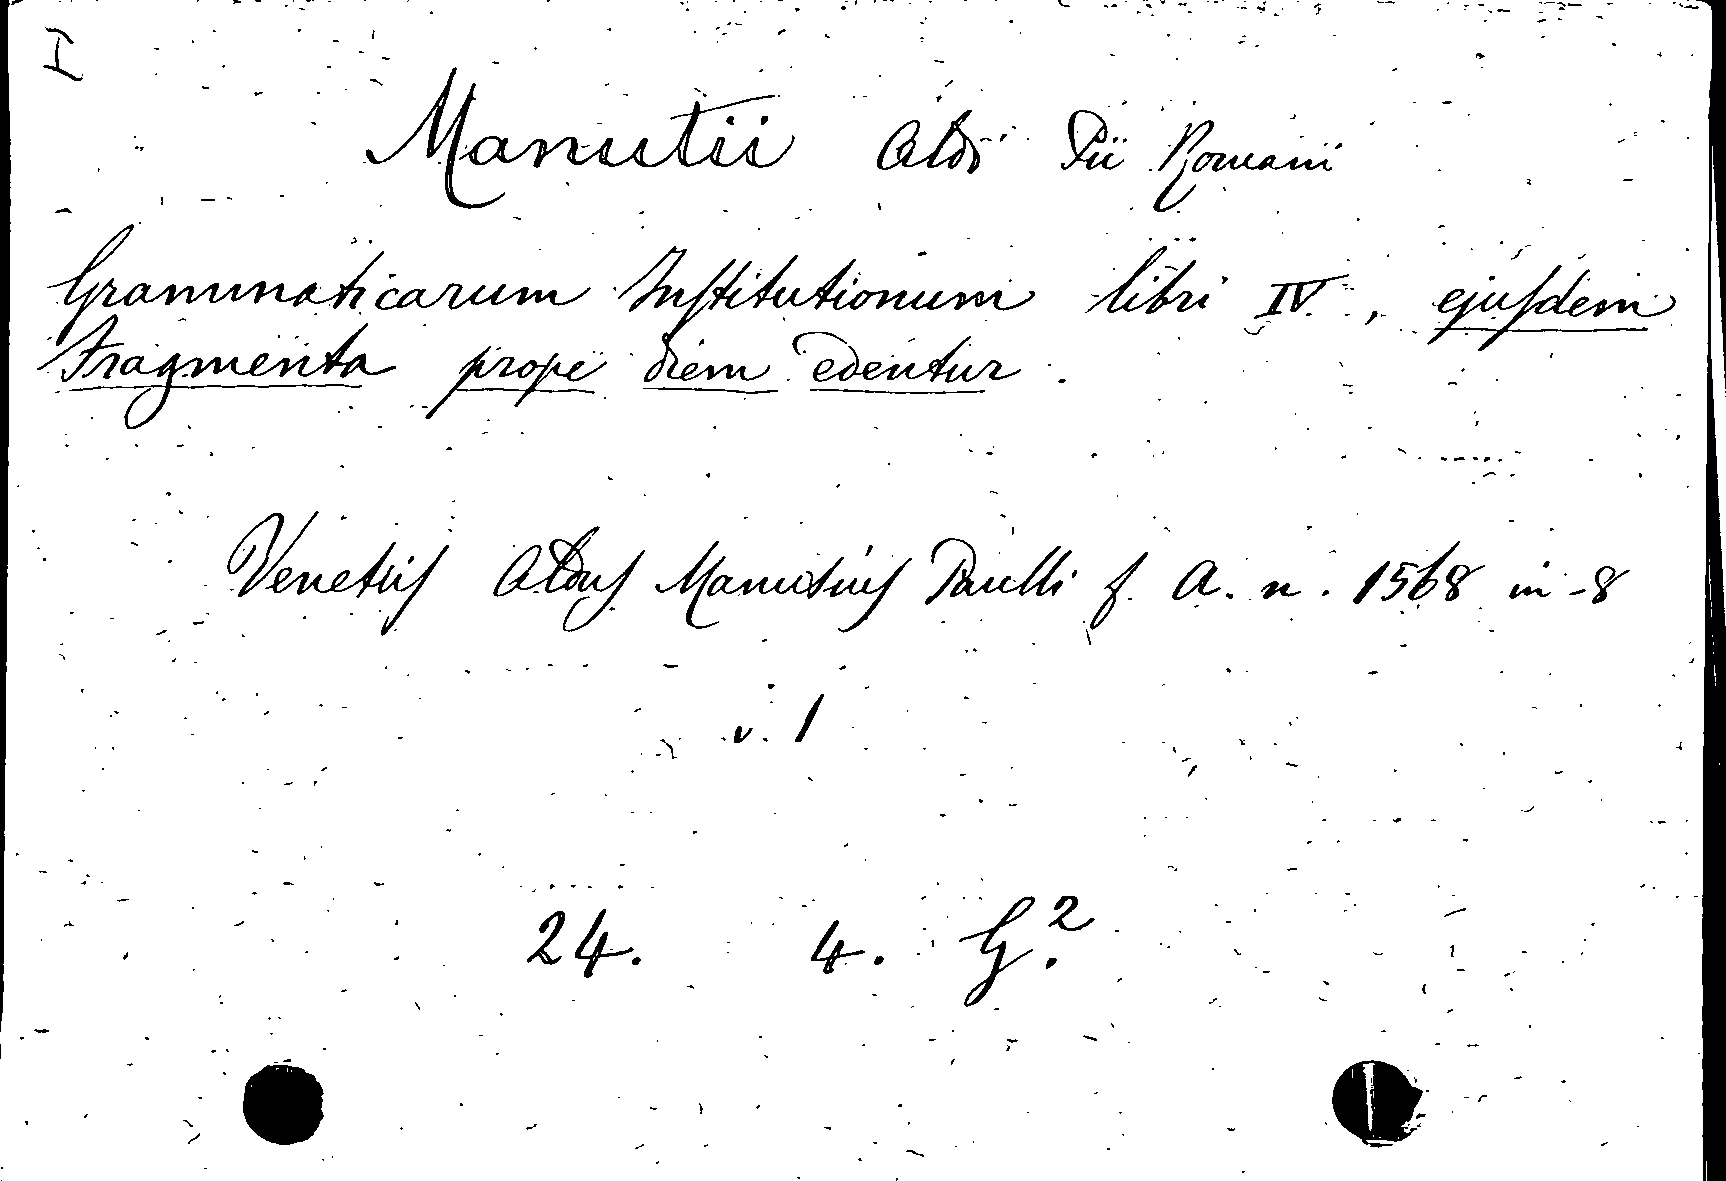 I
Manutii Aldi Pii Romani
Grammaticarum Inſtitutionum libri IV, ejuſdem
Fragmenta prope diem edentur.
Venetiiſ Alduſ Manutiuſ Paulli f. A. n. 1568 in-8
v. 1
24. 4. G.²